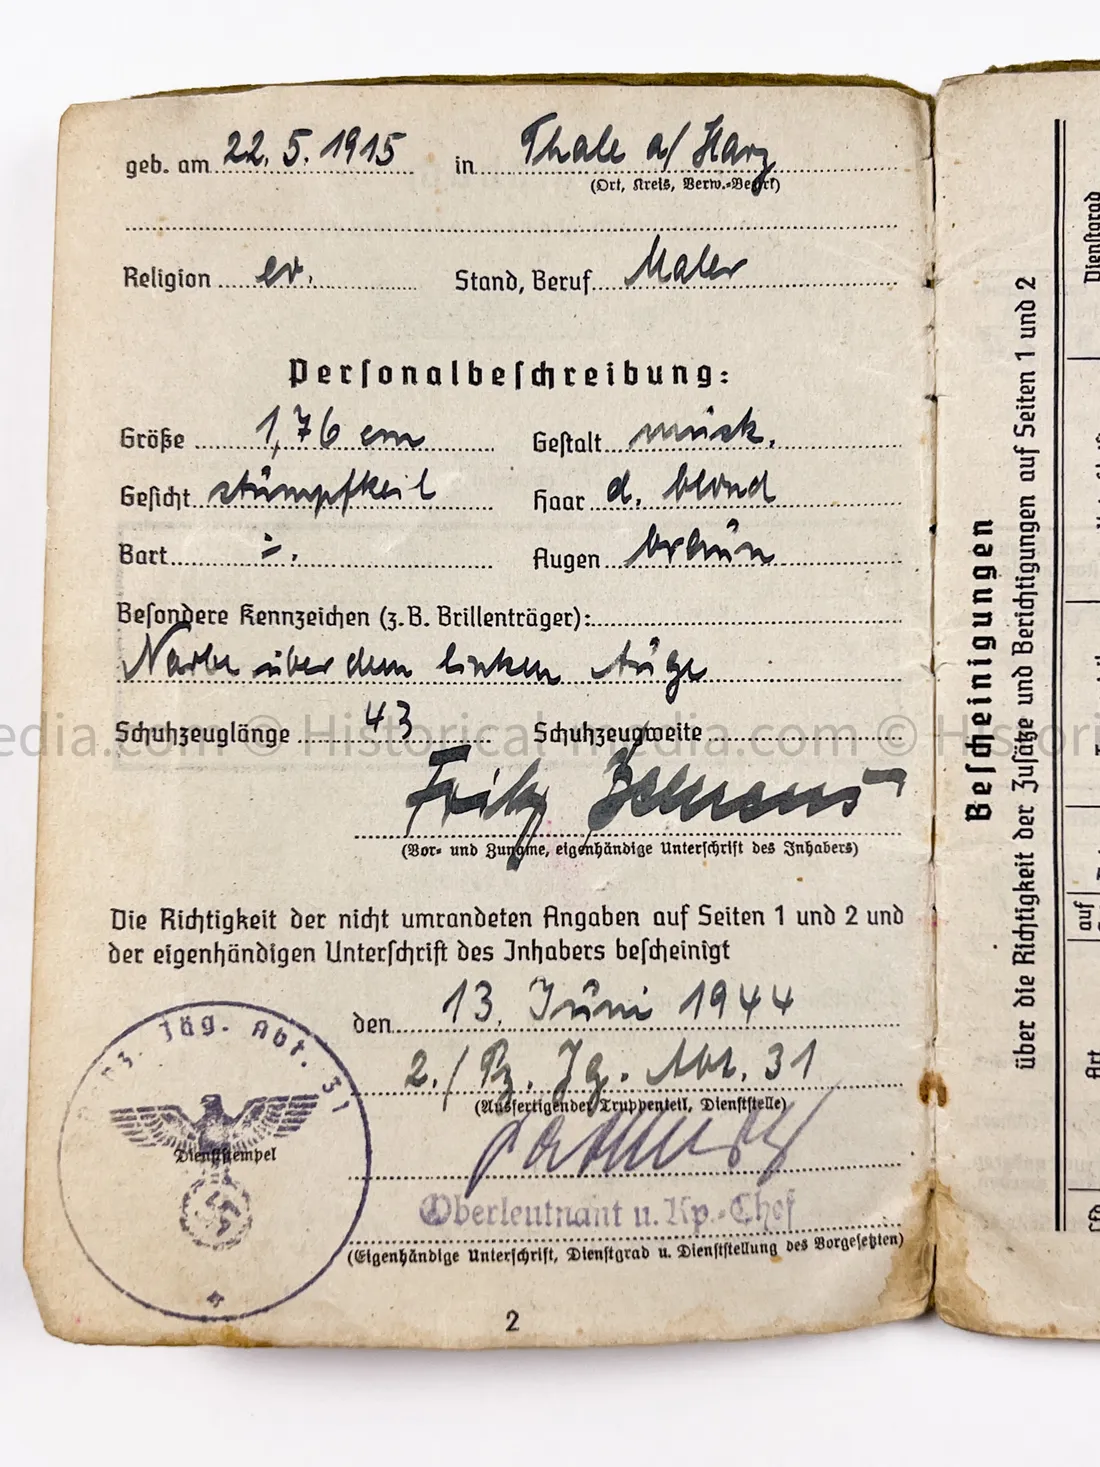 geb. am 22. 5. 1915 in Thale a/Harz
(Ort, Kreis, Verw.-Bezirk)
Religion ev. Stand, Beruf Maler
Personalbeschreibung:
Größe 1,76 cm Gestalt musk.
Gesicht stumpfkeil Haar d. blond
Bart -. Augen braun
Besondere Kennzeichen (z. B. Brillenträger):
Narbe über dem linken Auge
Schuhzeuglänge 43 Schuhzeugweite
© Historical-media.com ©
Fritz
(Vor- und Zuname, eigenhändige Unterschrift des Inhabers)
Die Richtigkeit der nicht umrandeten Angaben auf Seiten 1 und 2 und
der eigenhändigen Unterschrift des Inhabers bescheinigt
den 13. Juni 1944
2./Pz. Jg. Abt. 31
(Ausfertigender Truppenteil, Dienststelle)
Oberleutnant u. Kp.-Chef
(Eigenhändige Unterschrift, Dienstgrad u. Dienststellung des Vorgesetzten)
Jäg. Abt. 31
Dienststempel
2
Bescheinigungen
über die Richtigkeit der Zusätze und Berichtigungen auf Seiten 1 und 2
Dienstgrad
auf
Art